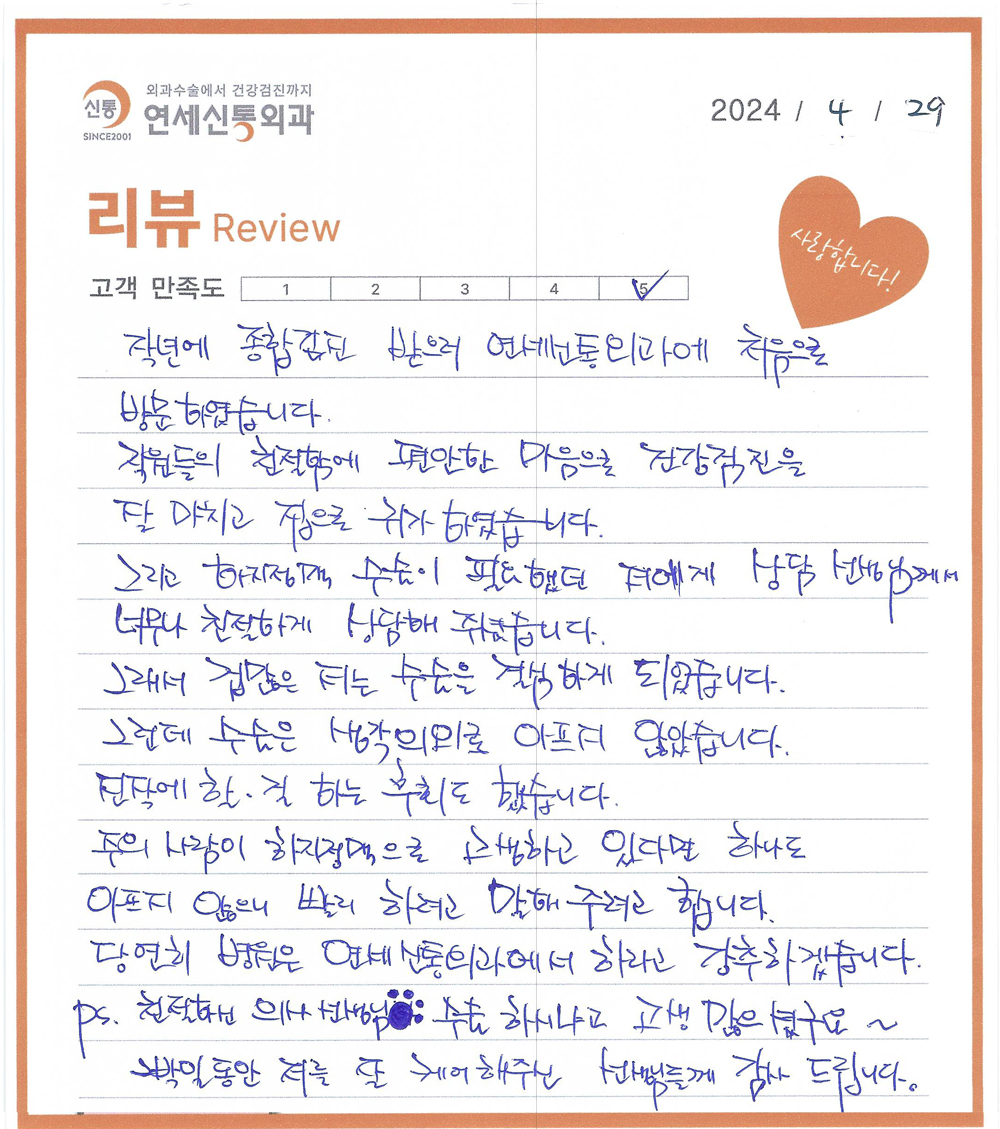 외과수술에서 건강검진까지
신통
연세신통외과
SINCE2001
2024 / 4 / 29
리뷰 Review
사랑합니다!
고객 만족도 1 2 3 4 5
작년에 종합검진 받으러 연세신통외과에 처음으로
방문하였습니다.
직원들의 친절함에 편안한 마음으로 건강검진을
잘 마치고 집으로 귀가 하였습니다.
그리고 하지정맥 수술이 필요했던 저에게 상담 선생님께서
너무나 친절하게 상담해 주셨습니다.
그래서 겁많은 저는 수술을 결심하게 되었습니다.
그런데 수술은 생각의외로 아프지 않았습니다.
진작에 할.걸 하는 후회도 했습니다.
주의 사람이 하지정맥으로 고생하고 있다면 하나도
아프지 않으니 빨리 하려고 말해 주려고 합니다.
당연히 병원은 연세신통외과에서 하라고 강추하겠습니다.
ps. 친절하신 의사 선생님 수술 하시냐고 고생 많으셨구요 ~
박일동안 저를 잘 케어해주신 선생님들께 감사 드립니다.